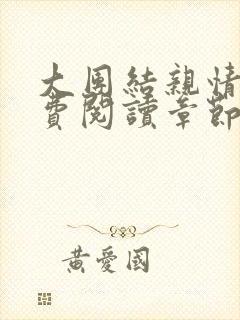 大団結親情
費閱讀章節
黃愛國